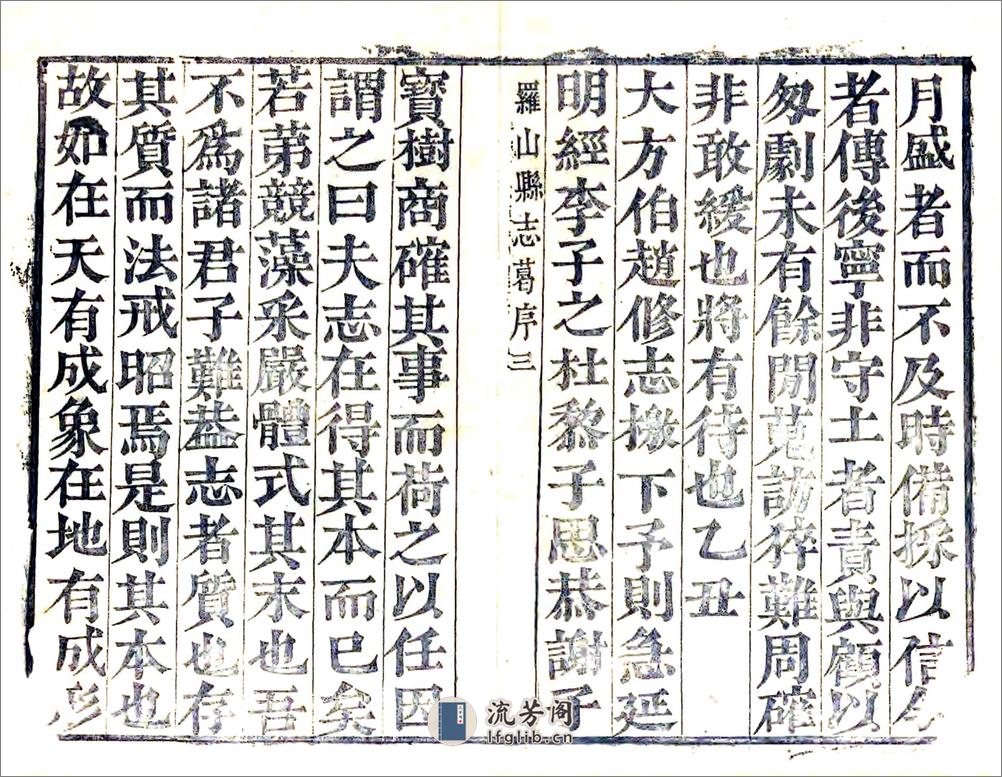 月盛者而不及時備採以信今
者傳後寧非守土者責與顧以
匆劇未有餘閒蒐訪猝難周確
非敢緩也將有待也乙丑
大方伯趙修志檄下予則急延
明經李子之杜黎子思恭謝子
羅山縣志葛序三
寶樹商確其事而荷之以任因
謂之曰夫志在得其本而已矣
若苐競藻采嚴體式其末也吾
不為諸君子難葢志者質也存
其質而法戒昭焉是則其本也
故如在天有成象在地有成形
流芳阁
lfglib.cn